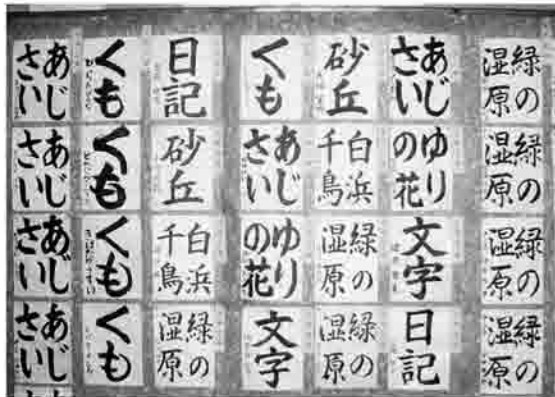 あじ
さい
くも
日記
くも
砂丘
あじ
さい
緑の
湿原
あじ
さい
くも
砂丘
あじ
さい
白浜
千鳥
ゆり
の花
緑の
湿原
あじ
さい
くも
白浜
千鳥
ゆり
の花
緑の
湿原
文字
緑の
湿原
あじ
さい
くも
緑の
湿原
文字
緑の
湿原
日記
緑の
湿原